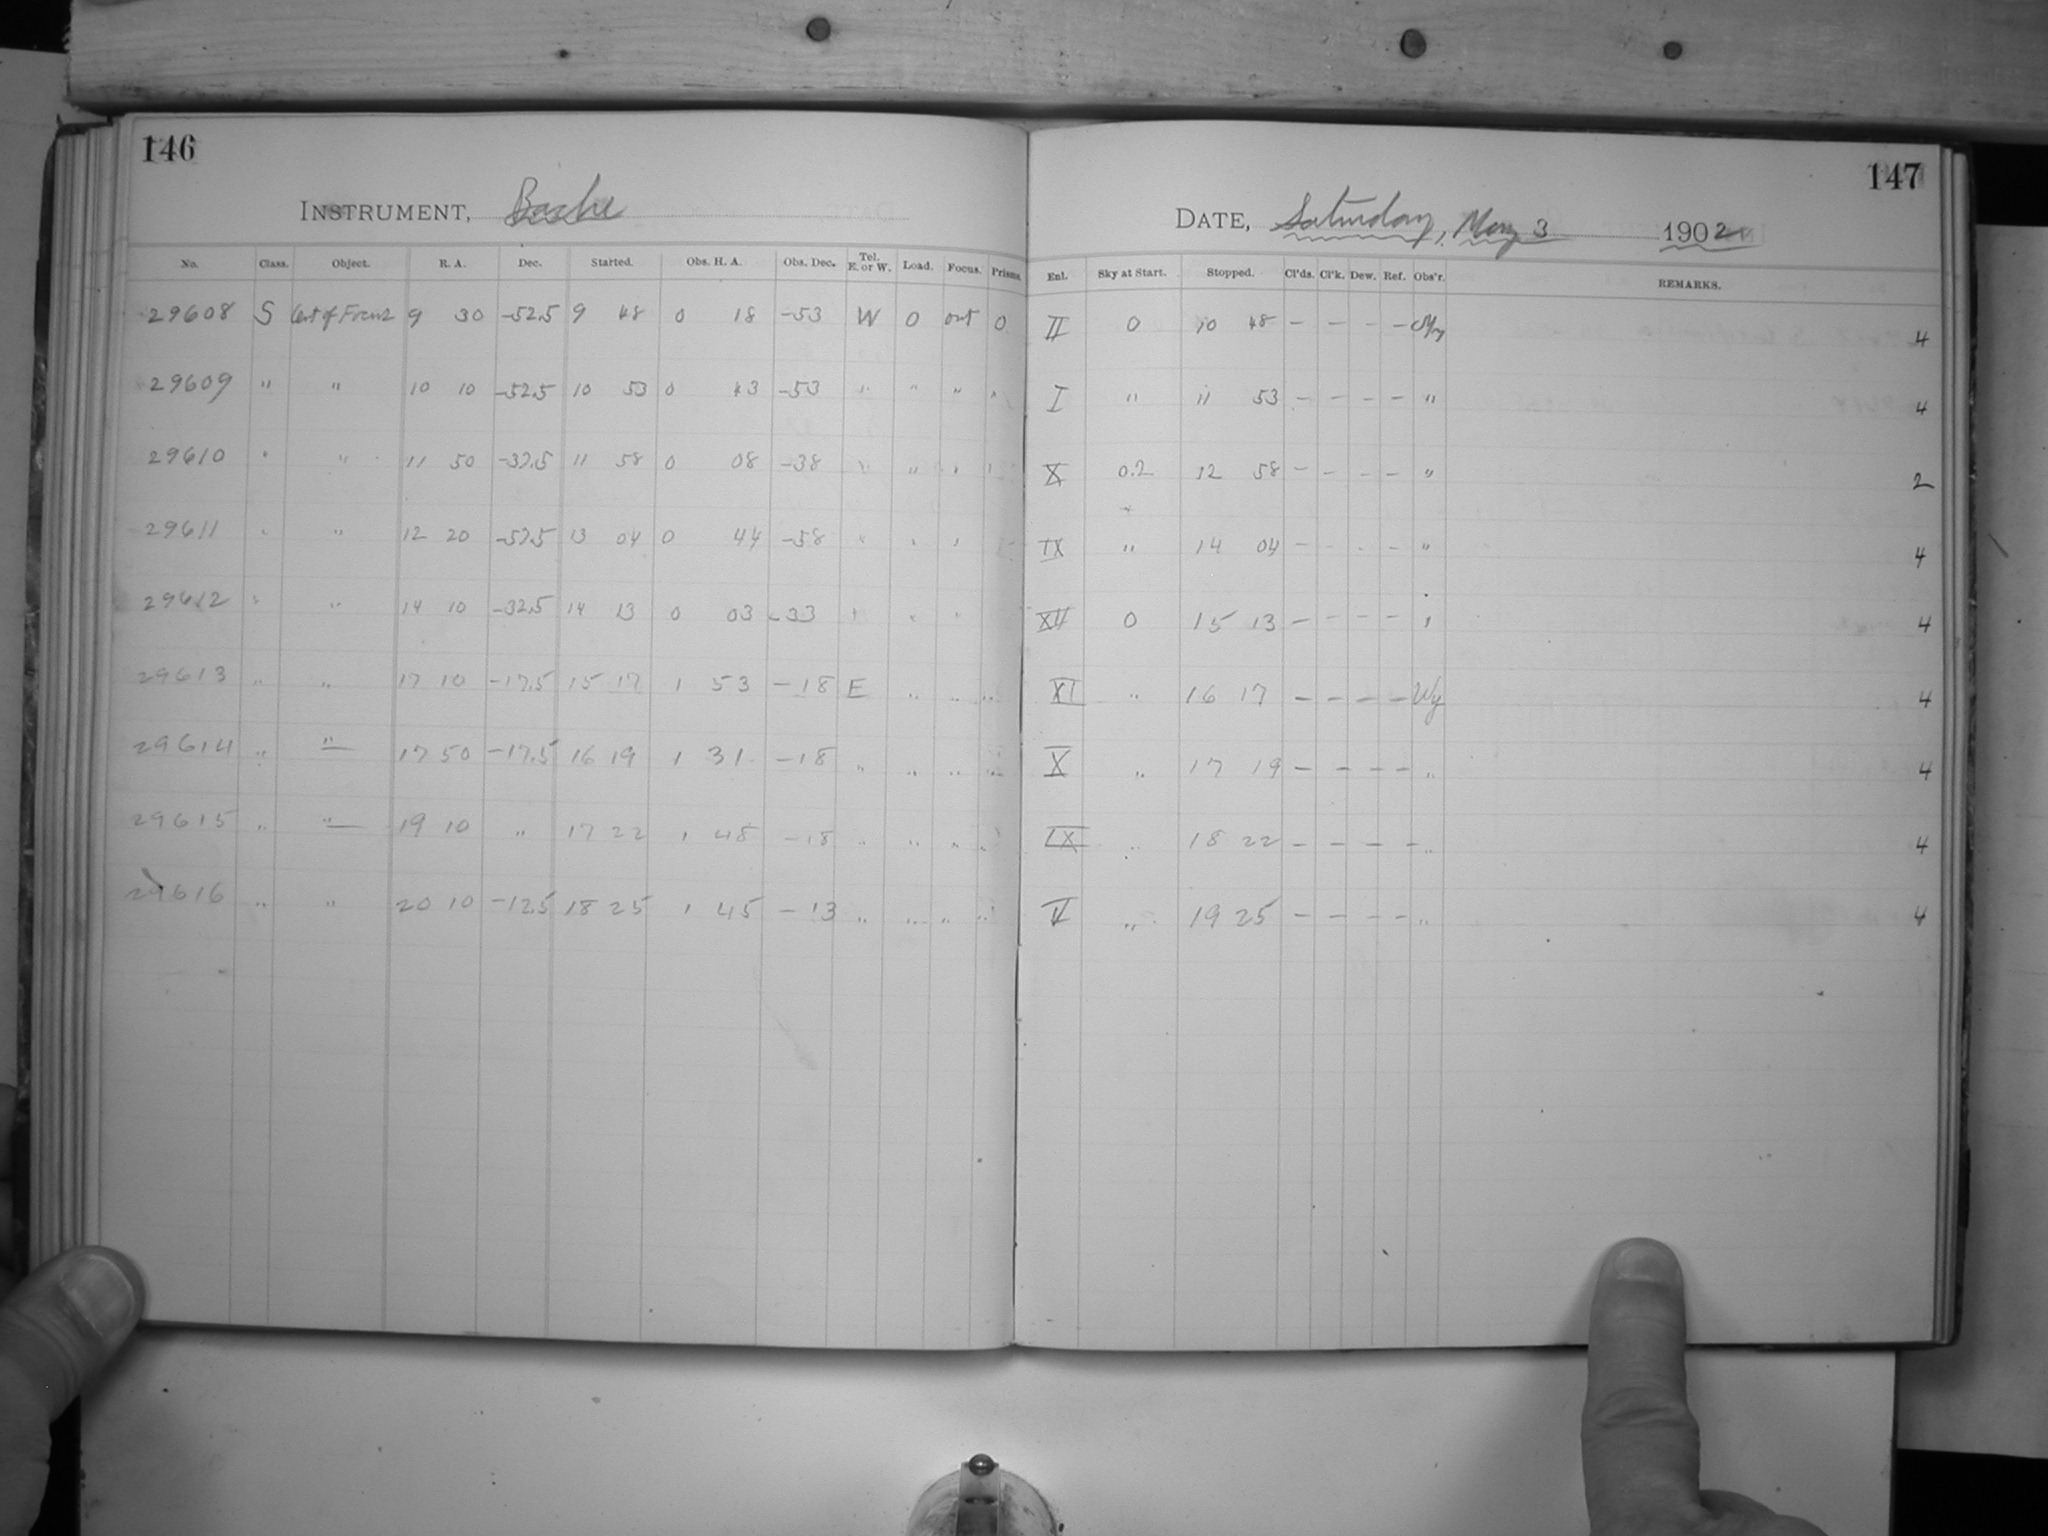 146
147
INSTRUMENT, Bache
DATE, Saturday, May 3 1902
No. Class. Object. R. A. Dec. Started. Obs. H. A. Obs. Dec. Tel. E. or W. Load. Focus. Prisms. Enl. Sky at Start. Stopped. Cl'ds. Cl'k. Dew. Ref. Obs'r. REMARKS.
29608 S Cent of Focus 9 30 -52.5 9 48 0 18 -53 W 0 out 0 II 0 10 48 – – – – 4
29609 " " 10 10 -52.5 10 53 0 43 -53 " " " " I " 11 53 – – – – " 4
29610 " " 11 50 -37.5 11 58 0 08 -38 " " " " X 0.2 12 58 – – – – " 2
29611 " " 12 20 -57.5 13 04 0 44 -58 " " " IX " 14 04 – – – – " 4
29612 " " 14 10 -32.5 14 13 0 03 -33 " " " XII 0 15 13 – – – – " 4
29613 " " 17 10 -17.5 15 17 1 53 -18 E " " " XI " 16 17 – – – – Wy 4
29614 " " 17 50 -17.5 16 19 1 31 -18 " " " " X " 17 19 – – – – " 4
29615 " " 19 10 " 17 22 1 48 -18 " " " " IX " 18 22 – – – – " 4
29616 " " 20 10 -12.5 18 25 1 45 -13 " " " " V " 19 25 – – – – " 4